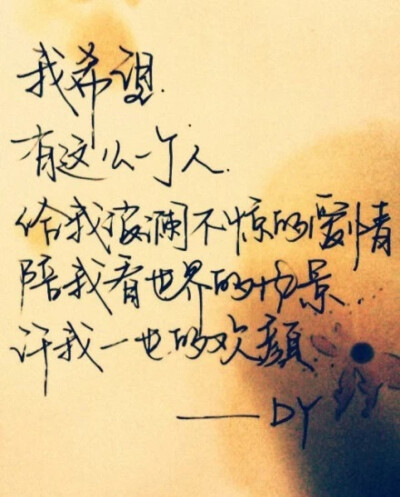 我希望
有这么一个人
给我波澜不惊的爱情
陪我看世界的物景
许我一世的欢颜
——DY